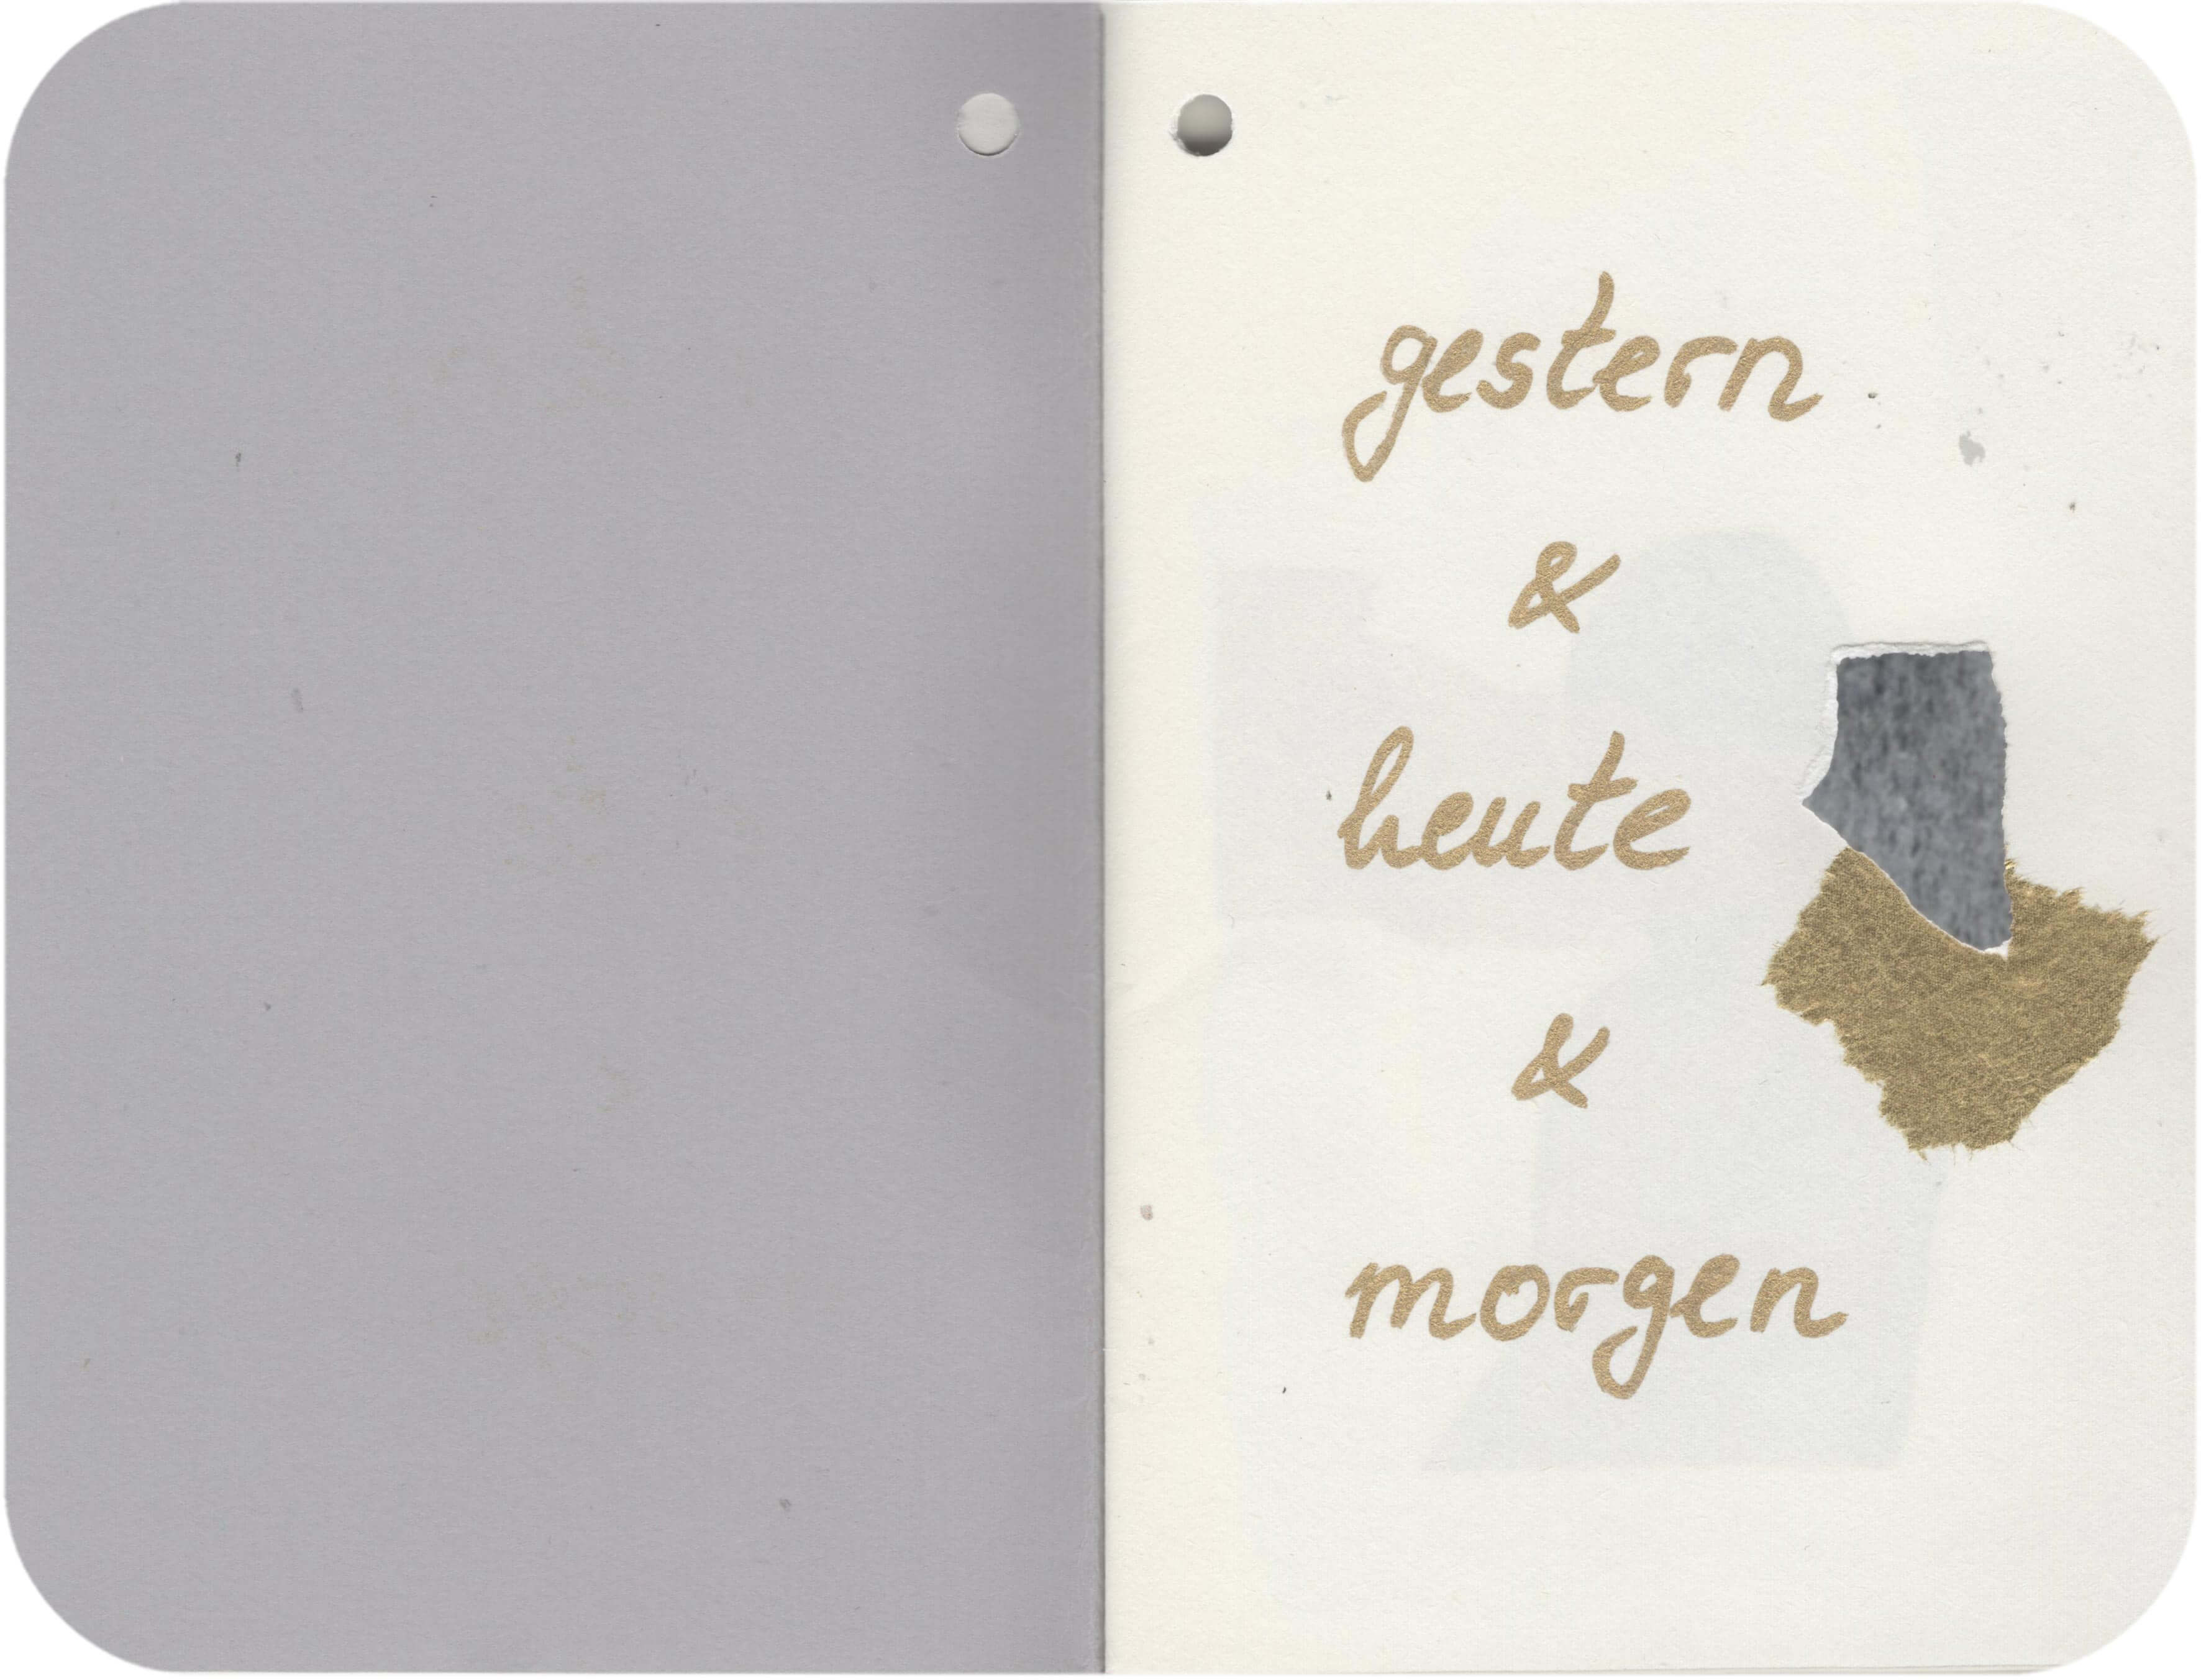 gestern
&
heute
&
morgen